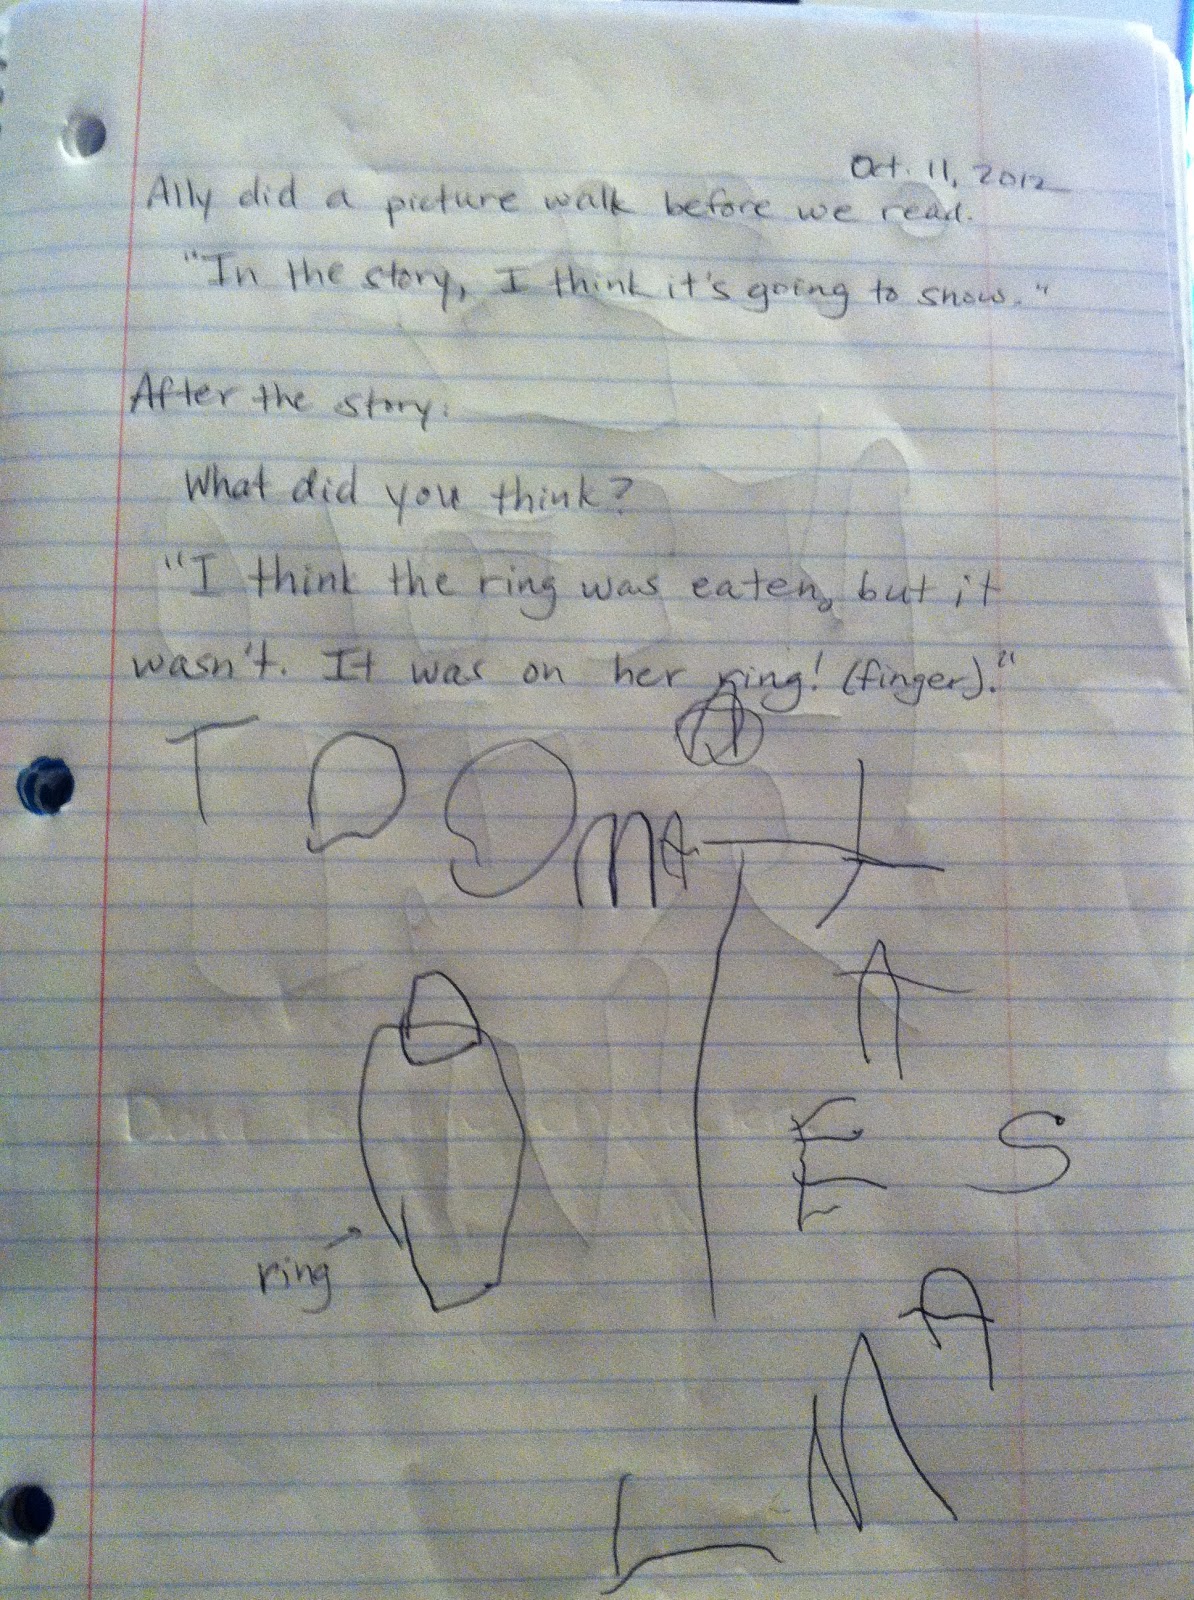 Oct. 11, 2012
Ally did a picture walk before we read.
"In the story, I think it's going to snow."
After the story:
What did you think?
"I think the ring was eaten, but it
wasn't. It was on her ring! (finger)."
A
T O O m A T
A
E S
ring
A
M
L